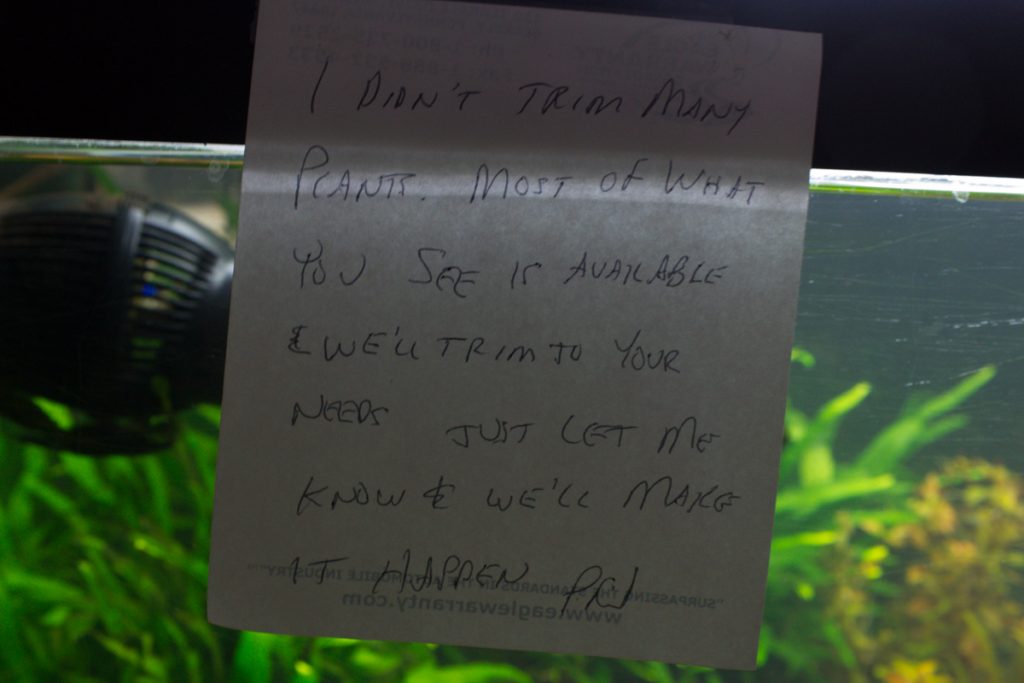 I DIDN'T TRIM MANY
PLANTS. MOST OF WHAT
YOU SEE IS AVAILABLE
& WE'LL TRIM TO YOUR
NEEDS JUST LET ME
KNOW & WE'LL MAKE
IT HAPPEN
"SURPASSING THE STANDARDS IN THE AUTOMOBILE INDUSTRY"
www.eaglewarranty.com